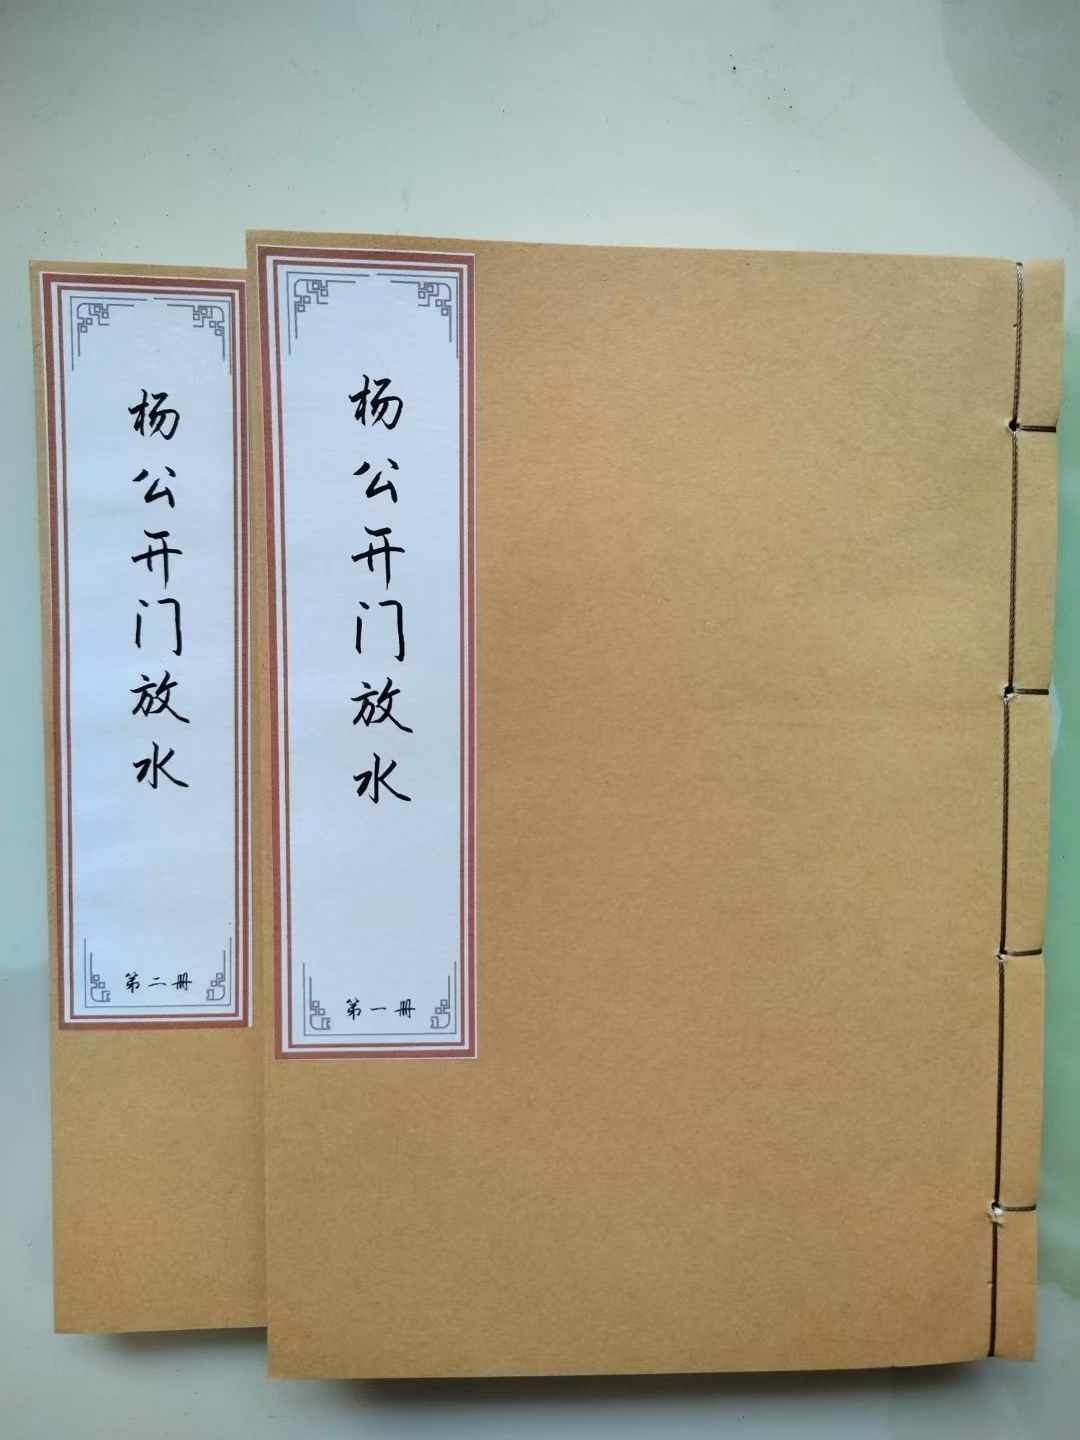 杨公开门放水
第二册
杨公开门放水
第一册